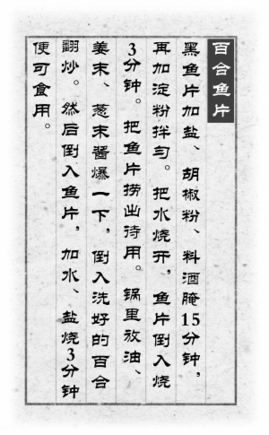 百合鱼片
黑鱼片加盐、胡椒粉、料酒腌15分钟，
再加淀粉拌匀。把水烧开，鱼片倒入烧
3分钟。把鱼片捞出待用。锅里放油、
姜末、葱末酱爆一下，倒入洗好的百合
翻炒。然后倒入鱼片，加水、盐烧3分钟
便可食用。